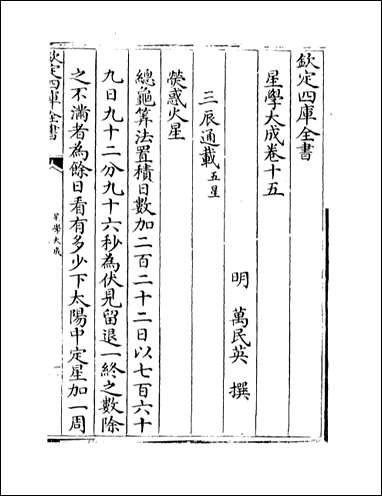 欽定四庫全書
星學大成卷十五
明 萬民英 撰
三辰通載五星
熒惑火星
總龜算法置積日數加二百二十二日以七百六十
九日九十二分九十六秒為伏見留退一終之數除
之不滿者為餘日看有多少下太陽中定星加一周
欽定四庫全書
星學大成